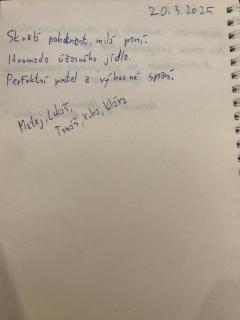 20.3.2025
Skvělá pohostinnost, milá paní.
Hromada úžasného jídla.
Perfektní postel a výborné spaní.
Matěj, Lukáš,
Tomáš, Kuba, Klára